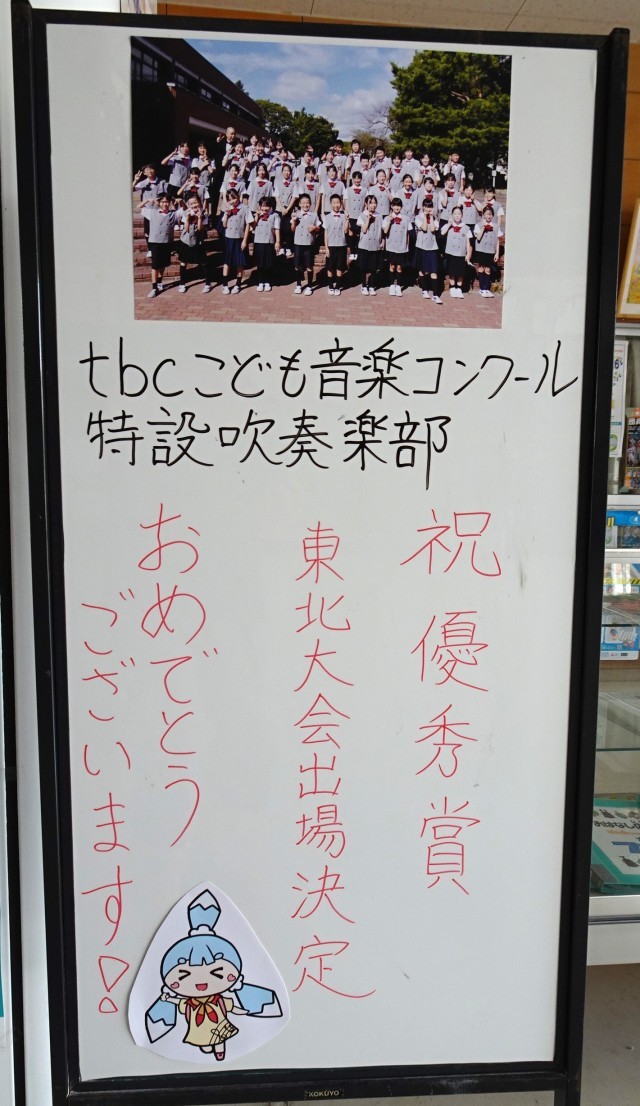 tbcこども音楽コンクール
特設吹奏楽部
祝 優秀賞
東北大会出場決定
おめでとう
ございます!
KOKUYO